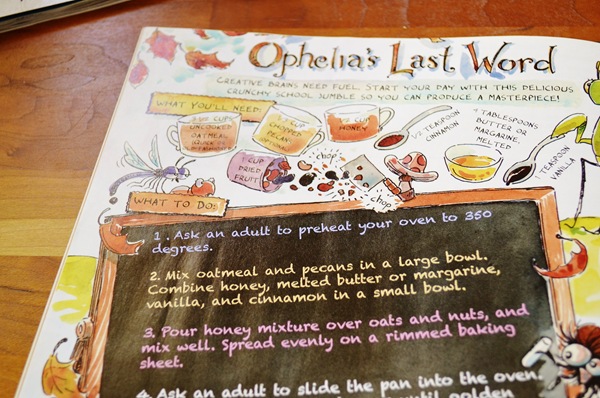 Ophelia's Last Word
CREATIVE BRAINS NEED FUEL. START YOUR DAY WITH THIS DELICIOUS
CRUNCHY SCHOOL JUMBLE SO YOU CAN PRODUCE A MASTERPIECE!
WHAT YOU'LL NEED:
CUPS
UNCOOKED
OATMEAL
CUP
CHOPPED
PECANS
CUP
HONEY
1/2 TEASPOON
CINNAMON
4 TABLESPOONS
BUTTER OR
MARGARINE,
MELTED
1 TEASPOON
VANILLA
1 CUP
DRIED
FRUIT
chop
chop
WHAT TO DO:
1. Ask an adult to preheat your oven to 350
degrees.
2. Mix oatmeal and pecans in a large bowl.
Combine honey, melted butter or margarine,
vanilla, and cinnamon in a small bowl.
3. Pour honey mixture over oats and nuts, and
mix well. Spread evenly on a rimmed baking
sheet.
4. Ask an adult to slide the pan into the oven.
until golden